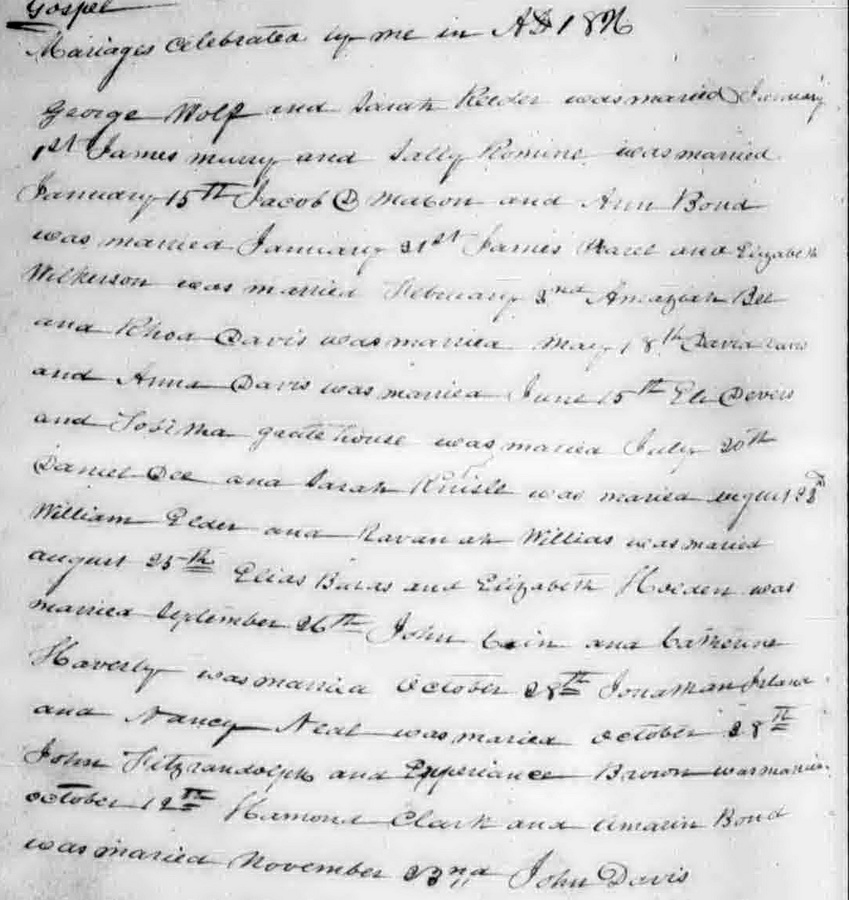 Gospel
Mariages Celebrated by me in AD 18
George Wolf and Sarah Reeder was maried January
1st James murry and Sally Romine was married
January 15th Jacob D mabon and Ann Bond
was married January 31st James and Elizabeth
Wilkerson was married February 2nd Amaziah Bee
and Rhoa Davis was married may 18th David Davis
and Anna Davis was married June 15th Eli Devers
and gatehouse was maried July 20th
Daniel Dee and Sarah was maried august 23d
William Elder and Willias was maried
august 25th Elias and Elizabeth Holden was
married September 26th John Cain and Catherine
Haverly was married october 28th Jonathan
and Nancy Neal was maried october 28th
John Fitzrandolph and Experiance Brown was maried
october 12th Hamond Clark and Bond
was maried november 23nd John Davis